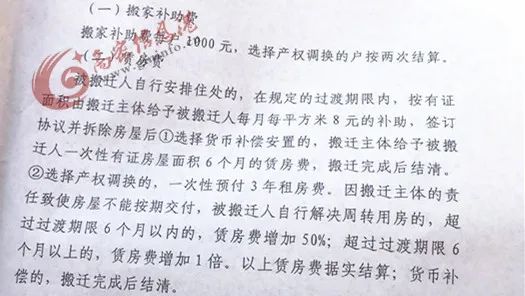 (一) 搬家补助费
搬家补助费每户 1000 元，选择产权调换的户按两次结算。
(二) 赁房费
被搬迁人自行安排住处的，在规定的过渡期限内，按有证
面积由搬迁主体给予被搬迁人每月每平方米 8 元的补助，签订
协议并拆除房屋后①选择货币补偿安置的，搬迁主体给予被搬
迁人一次性有证房屋面积 6 个月的赁房费，搬迁完成后结清。
②选择产权调换的，一次性预付 3 年租房费。因搬迁主体的责
任致使房屋不能按期交付，被搬迁人自行解决周转用房的，超
过过渡期限 6 个月以内的，赁房费增加 50%；超过过渡期限 6
个月以上的，赁房费增加 1 倍。以上赁房费据实结算；货币补
偿的，搬迁完成后结清。